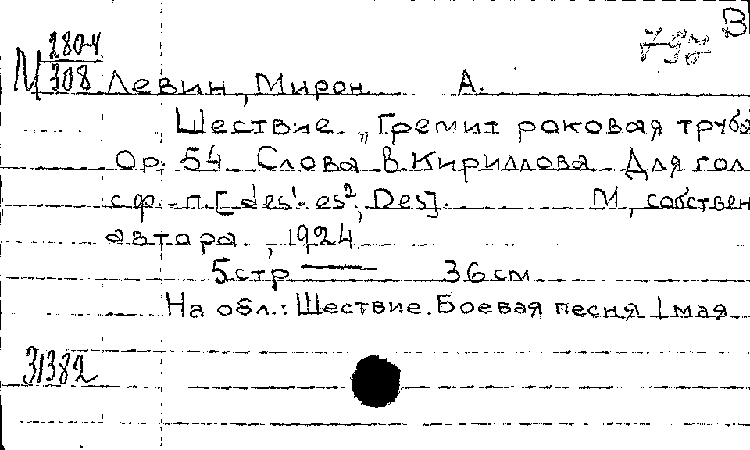 В
М 280-4
308 Левин, Мирон А.
Шествие. „Гремит роковая труба
Ор. 54 Слова В. Кириллова Для гол
с ф.-п. [des¹-es², Des]. М, собствен
автора, 1924
5 стр 36 см
На обл.: Шествие. Боевая песня 1 мая
31382